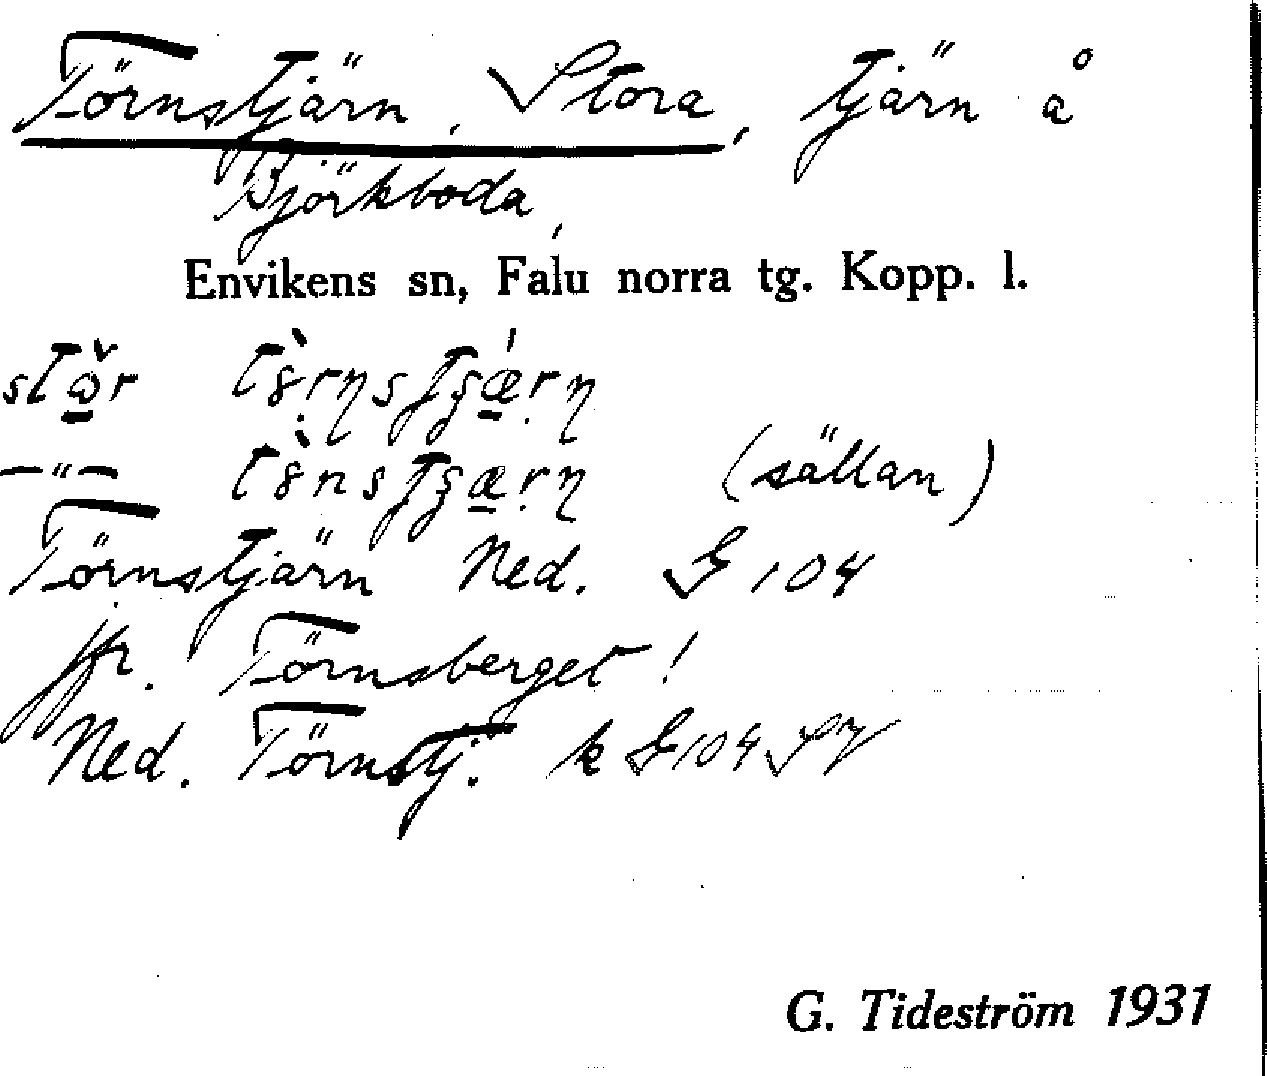 Törnstjärn, Stora, tjärn å
Björkboda,
Envikens sn, Falu norra tg. Kopp. l.
(sällan)
Törnstjärn Ned. G 104
jfr. Törnsberget!
Ned. Törnstj. k G 104 SV
G. Tideström 1931